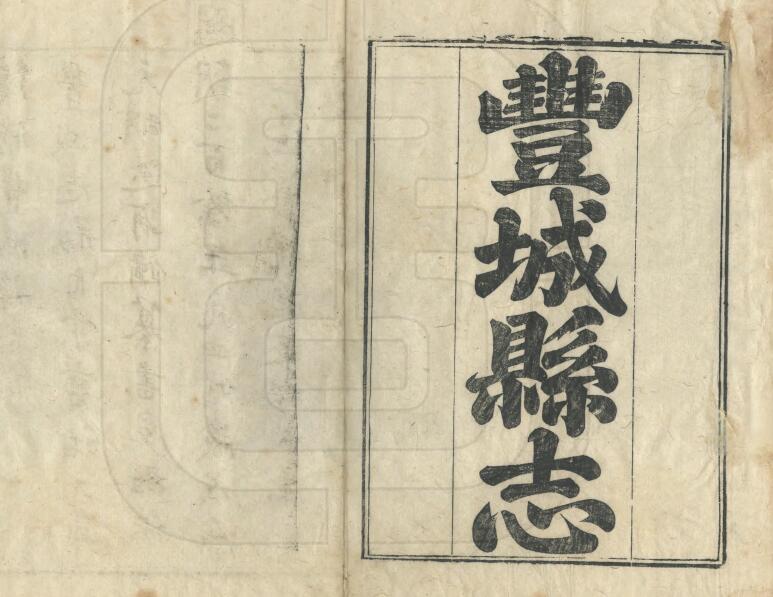 豐城縣志